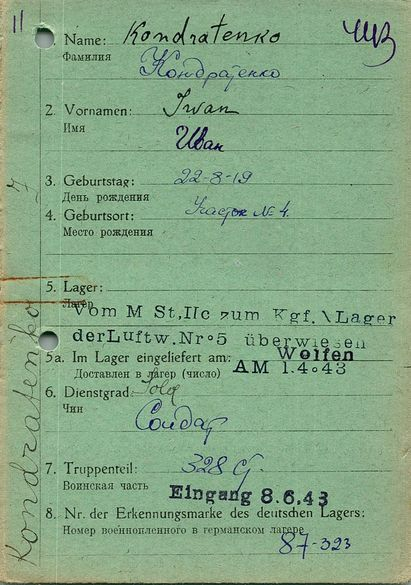 11
Name: Kondratenko
Фамилия
Кондратенко
2. Vornamen: Iwan
Имя
Иван
3. Geburtstag: 22-8-19
День рождения
4. Geburtsort: Участок № 4.
Место рождения
5. Lager:
Лагерь
Vom M St,IIc zum Kgf.\Lager
der Luftw. Nr◦5 überwiesen
Wolfen
5a. Im Lager eingeliefert am:
Доставлен в лагерь (число)
AM 1.4◦43
6. Dienstgrad: Sold
Чин
Солдат
7. Truppenteil: 328
Воинская часть
Eingang 8.6.43
8. Nr. der Erkennungsmarke des deutschen Lagers:
Номер военнопленного в германском лагере
87-323
Kondratenko